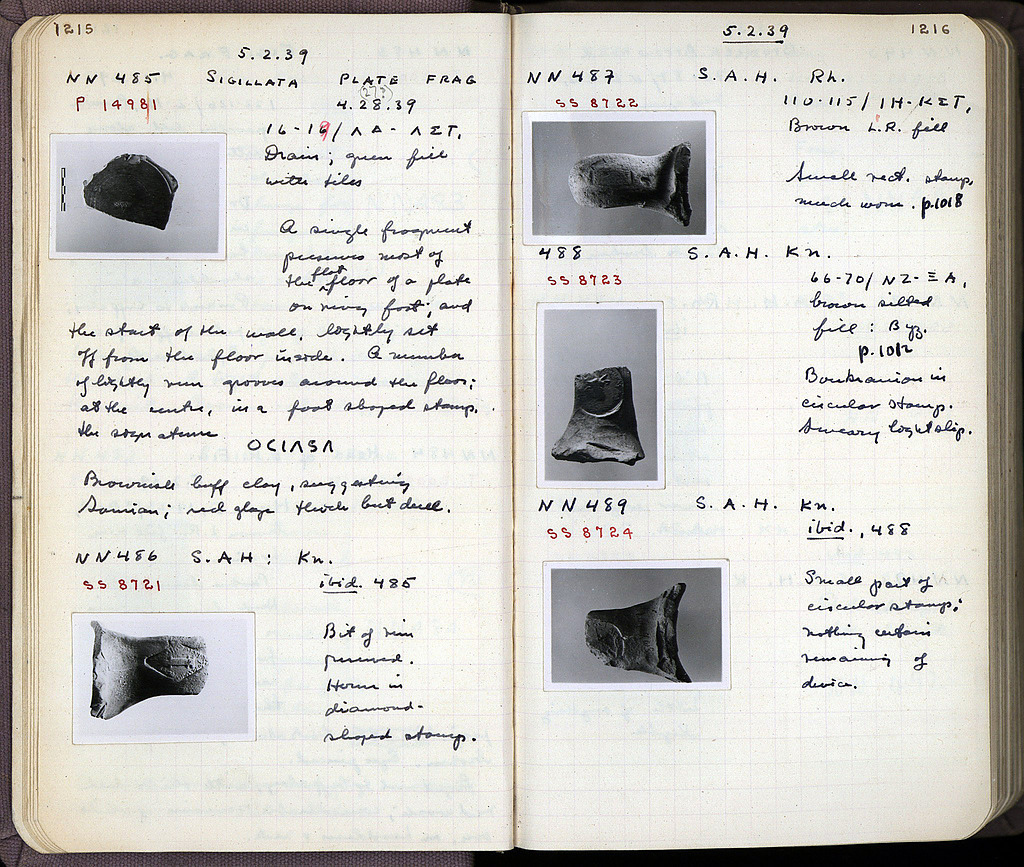 1215
5.2.39
NN 485 SIGILLATA PLATE FRAG
P 14981 (27?)
4.28.39
16-19/ΛΑ-ΛΣΤ,
Drain; green fill
with tiles
A single fragment
preserves most of
the flat floor of a plate
on ring foot; and
the start of the wall, lightly set
off from the floor inside. A number
of lightly run grooves around the floor;
at the centre, in a foot shaped stamp,
the signature
OCIASA
Brownish buff clay, suggesting
Samian; red glaze thick but dull.
NN 486 S.A.H: Kn.
SS 8721 ibid. 485
Bit of rim
preserved.
Herm in
diamond-
shaped stamp.
5.2.39 1216
NN 487 S.A.H. Rh.
SS 8722 110-115/ΙΗ-ΚΣΤ,
Brown L.R. fill
Small rect. stamp,
much worn. p.1018
488 S.A.H. Kn.
SS 8723 66-70/ΝΖ-ΞΑ,
brown silted
fill: Byz.
p.1012
Boukranion in
circular stamp.
Smeary light slip.
NN 489 S.A.H. Kn.
SS 8724 ibid., 488
Small part of
circular stamp;
nothing certain
remaining of
device.